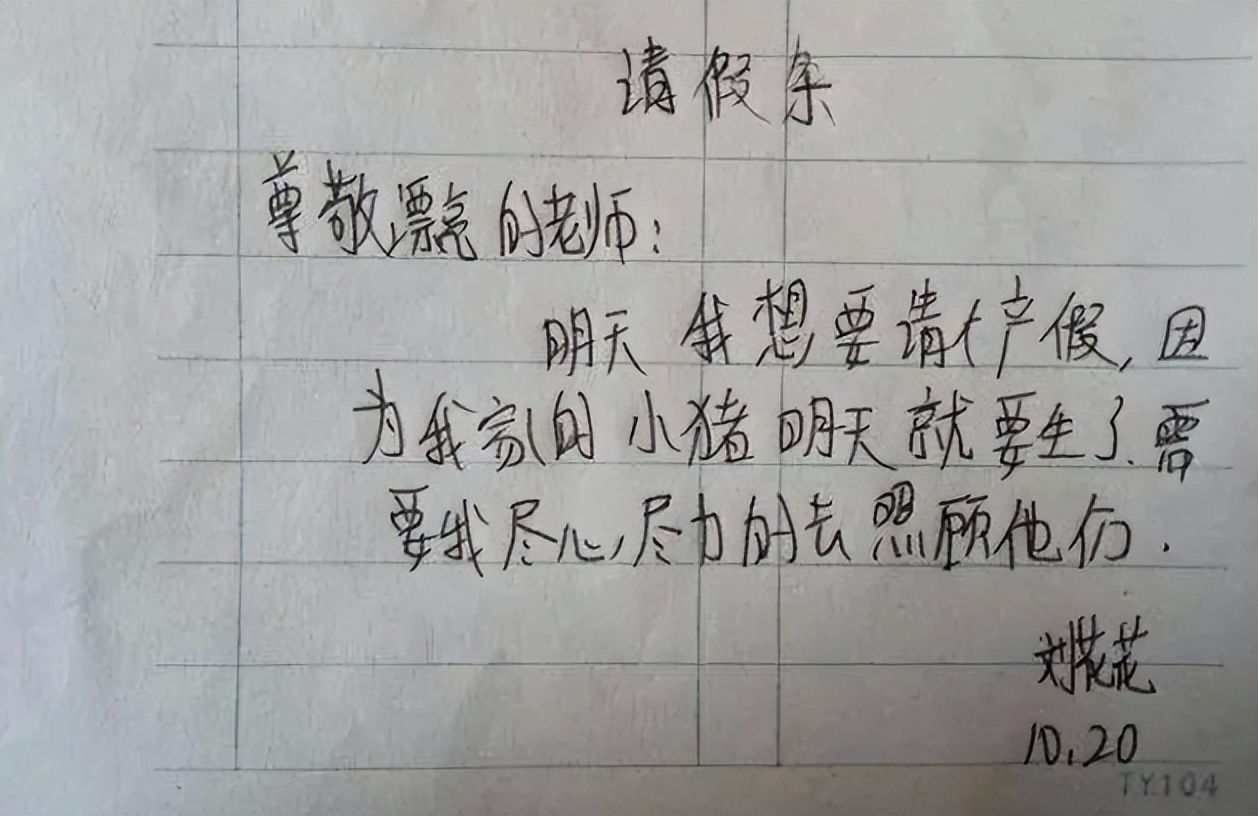 请假条
尊敬漂亮的老师:
明天我想要请个产假,因
为我家的小猪明天就要生了.需
要我尽心尽力的去照顾他们.
刘花花
10.20
TY104